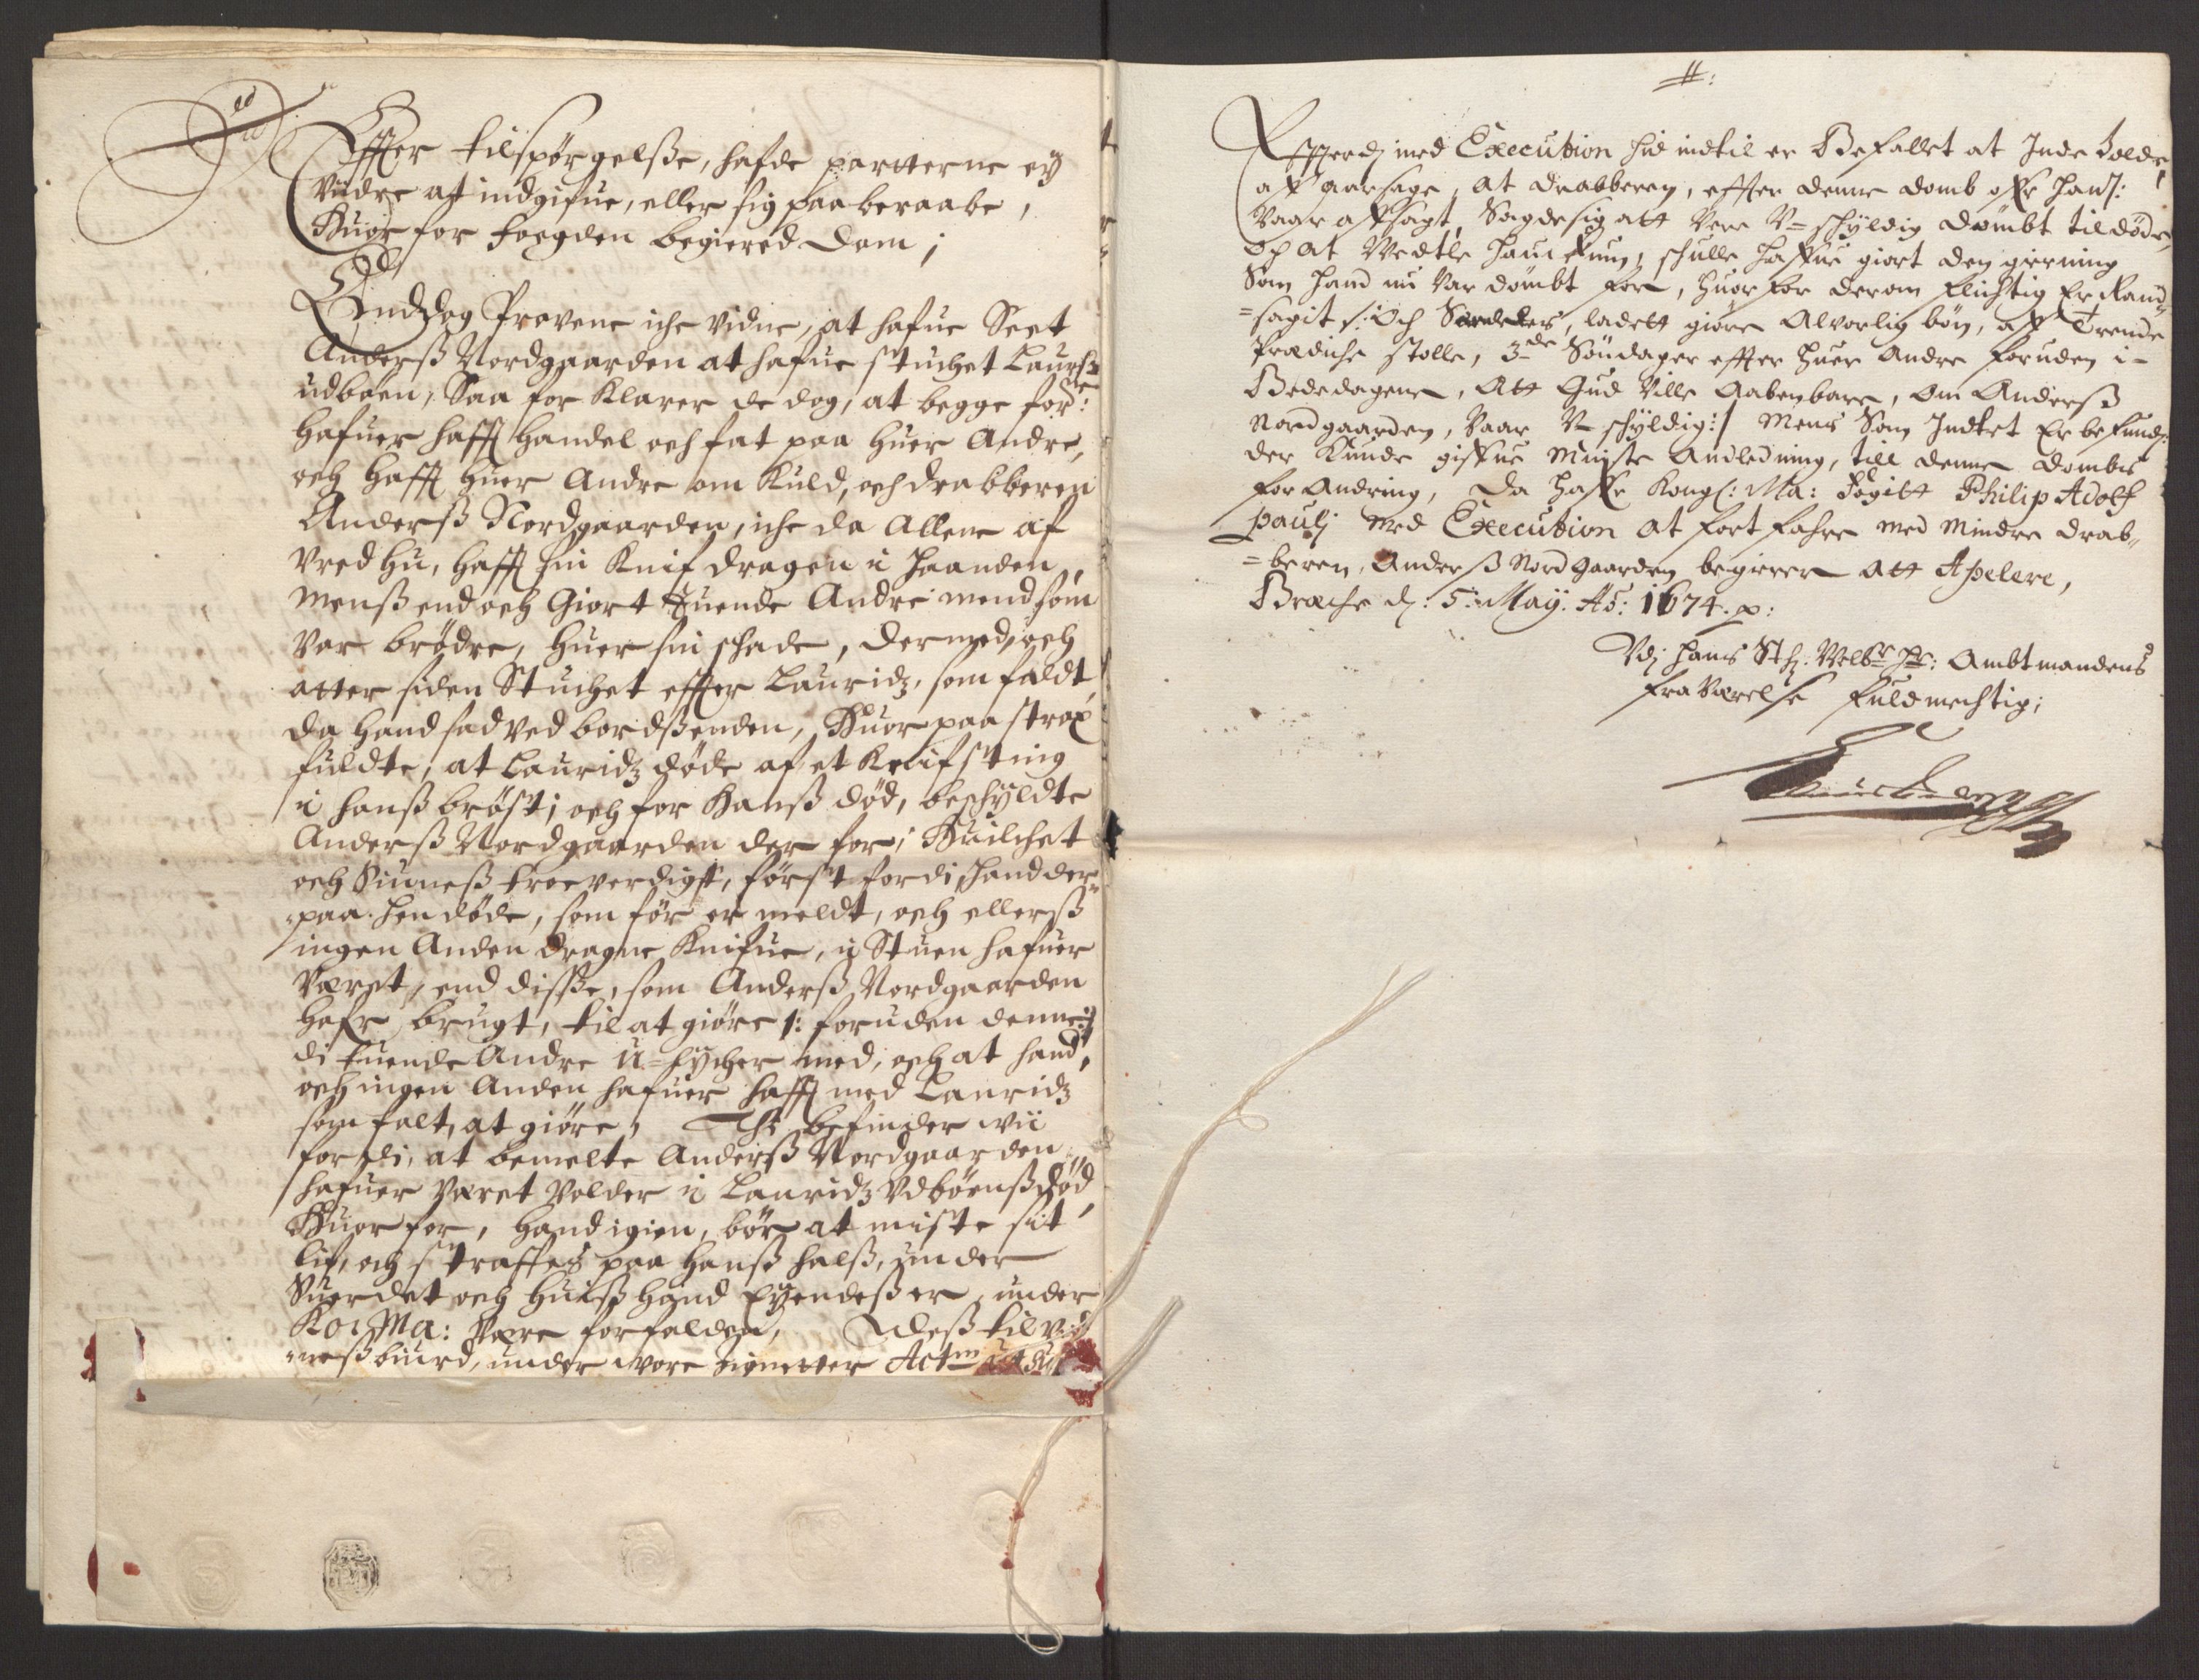 Effter tilspörgelsse, hafde partterne ey
Vidre at indgifue, eller sig paaberaabe,
Huor for foegden begiered Dom;
Endog Provene iche vidne, at hafue Seet
Anderss Nordgaarden at hafue stuchet Lauridz
udböen, Saa for Klarer de dog, at begge for:ne
hafuer hafft handel och fat paa huer Andre,
och hafft huer Andre om Kuld, och drabberen
Anderss Nordgaarden, iche da Allene af
Vred hu, hafft sin Knif dragen i haanden,
menss end och Giort tuende Andre mend som
var brödre, huer sin schade, dermed, och
atter siden Stuchet effter Lauridz, som faldt,
da hand sad ved bordssenden, Huor paa strax
fuldte, at Lauridz döde af et Knifsting
i hanss bröst; och for hanss död, beschyldte
Anderss Nordgaarden der for; Huilchet
och Siuness troeverdigst, först fordi hand der
paa hen döde, som för er meldt, och ellerss
ingen Anden dragne Knifue, i Stuen hafuer
Været, end disse, som Anderss Nordgaarden
hafr brugt, til at giöre /: foruden denne :/
di tuende Andre u-lycher med, och at hand,
och ingen Anden hafuer hafft med Lauridz
som falt, at giöre, Thi befinder wii
fordi, at bemelte Anderss Nordgaarden
hafuer Været Volder i Lauridz Vdböenss död,
Huor for, hand igien, bör at miste sit
lif, och straffes paa hanss halss, under
Suerdet och huiss hand Eyendess er, under
Ko: Ma: Være forfalden, Dess til vid
=nessbiurd, under wore zignetter Actm
#:
Effterdj med Execution hid indtil er Befallet at Inde holde,
aff aarsage, at drabberen, effter denne domb offr hans:
Vaar affsagt, Sagde sig att Vere V=schyldig dömbt til döde,
och at Wedtle haucksun, schulle haffue giort den gierning
Som hand nu Var dömbt for, huor for derom flichtig Er Rand=
=sagit /: Och Særdeles, ladett giöre Alvorlig bön, aff Trende
Prædiche stolle, 3de Söndager effter huer Andre foruden i-
Bededagene, Att Gud Ville Aabenbare, om Anderss
Nordgaarden, Vaar V-schyldig :/ Mens Som Indtet Er befunde
der Kunde giffue Minste Andledning, till denne dombs
for Andring, Da haffr Kongl: Ma: Fogitt Philip Adolf
paulj med Execution at fort fahre med mindre drab=
=beren, Anderss Nordgaarden begierer att Apelere,
Brache d: 5: May: Ao: 1674. p:
Vdj hans Str: Velbr hr: Ambtmandens
fraVærelse fuldmechtig;